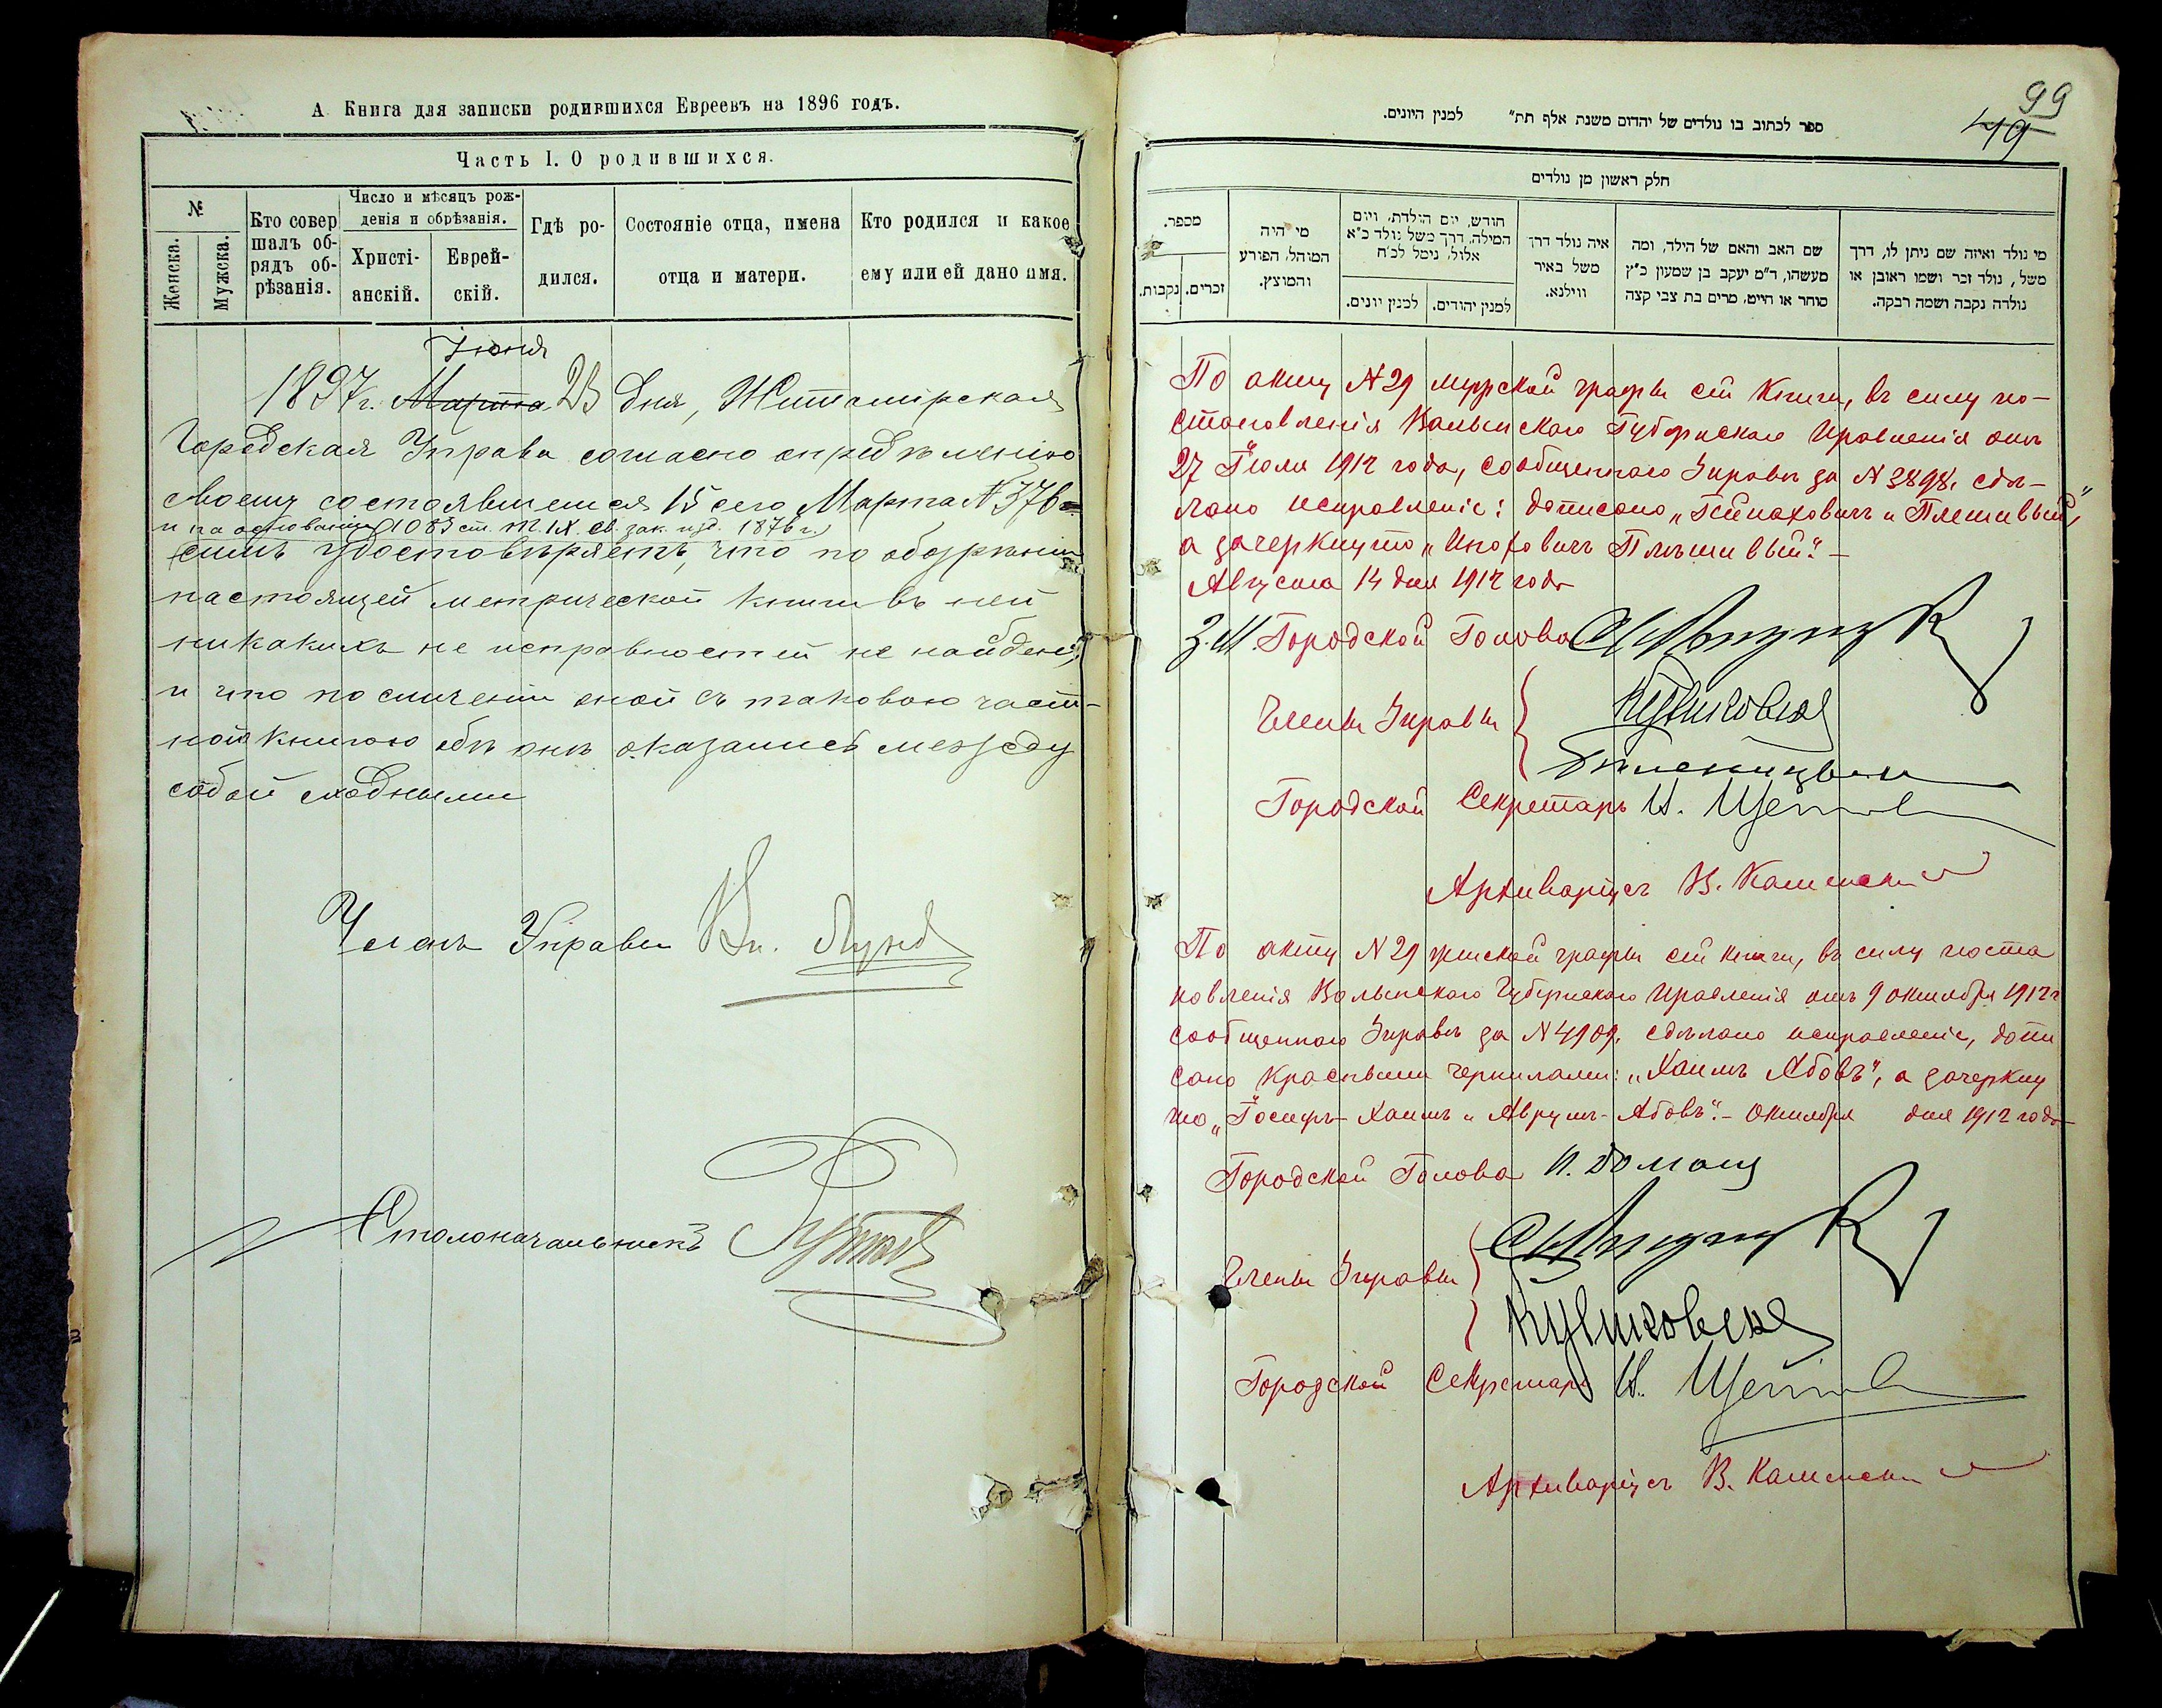 А Книга для записки родившихся Евреевъ на 1896 годъ.
Часть I. О родившихся.
№
Женска.
Мужска.
Кто совершалъ обрядъ обрѣзанія.
Число и мѣсяцъ рожденія и обрѣзанія.
Христіанскій.
Еврейскій.
Гдѣ родился.
Состояніе отца, имена отца и матери.
Кто родился и какое ему или ей дано имя.
Іюня
1897 г. Марта 23 дня, Житомірская
Городская Управа согласно опредѣленію
своему состоявшемуся 15 сего Марта № 376
и на основаніи 1083 ст. т. IX св. зак. изд. 1876 г.
симъ удостовѣряетъ, что по обозрѣніи
настоящей метрической книги въ ней
никакихъ не исправностей не найдено,
и что по сличеніи оной съ таковою част-
ной книгою обѣ онѣ оказались между
собой сходными
Членъ Управы
Столоначальникъ
99
49
ספר לכתוב בו נולדים של יהדום משנת אלף תת״ למנין היונים.
חלק ראשון מן נולדים
מספר.
נקבות.
זכרים.
מי היה המוהל, הפורע והמוצץ.
חודש, יום הולדת, ויום המילה, דרך משל נולד כ״א אלול, נימל לכ״ח
למנין יונים.
למנין יהודים.
איה נולד דרך משל באיר ווילנא.
שם האב והאם של הילד, ומה מעשהו, ד״מ יעקב בן שמעון כ״ץ סוחר או חייט, מרים בת צבי קצה
מי נולד ואיזה שם ניתן לו, דרך משל, נולד זכר ושמו ראובן או נולדה נקבה ושמה רבקה.
По акту № 29 мужской графы сей книги, въ силу по-
становленія Волынскаго Губернскаго Правленія отъ
27 Іюля 1912 года, сообщеннаго Управѣ за № 3898, сдѣ-
лано исправленіе: дописано „Гейнаховичъ и Плешивый",
а зачеркнуто „ Плѣшивый". —
Августа 14 дня 1912 года
З. М. Городской Голова
Члены Управы
Городской Секретарь
Архиваріусъ В. Каменскій
По акту № 29 женской графы сей книги, въ силу поста
новленія Волынскаго Губернскаго Правленія отъ 9 октября 1912 г
сообщеннаго Управѣ за № 4909, сдѣлано исправленіе, допи
сано красными чернилами: „Хаимъ Абовъ", а зачеркну
то „Іосифъ-Хаимъ и Аврумъ-Абовъ". — Октября дня 1912 года
Городской Голова
Члены Управы
Городской Секретарь
Архиваріусъ В. Каменскій